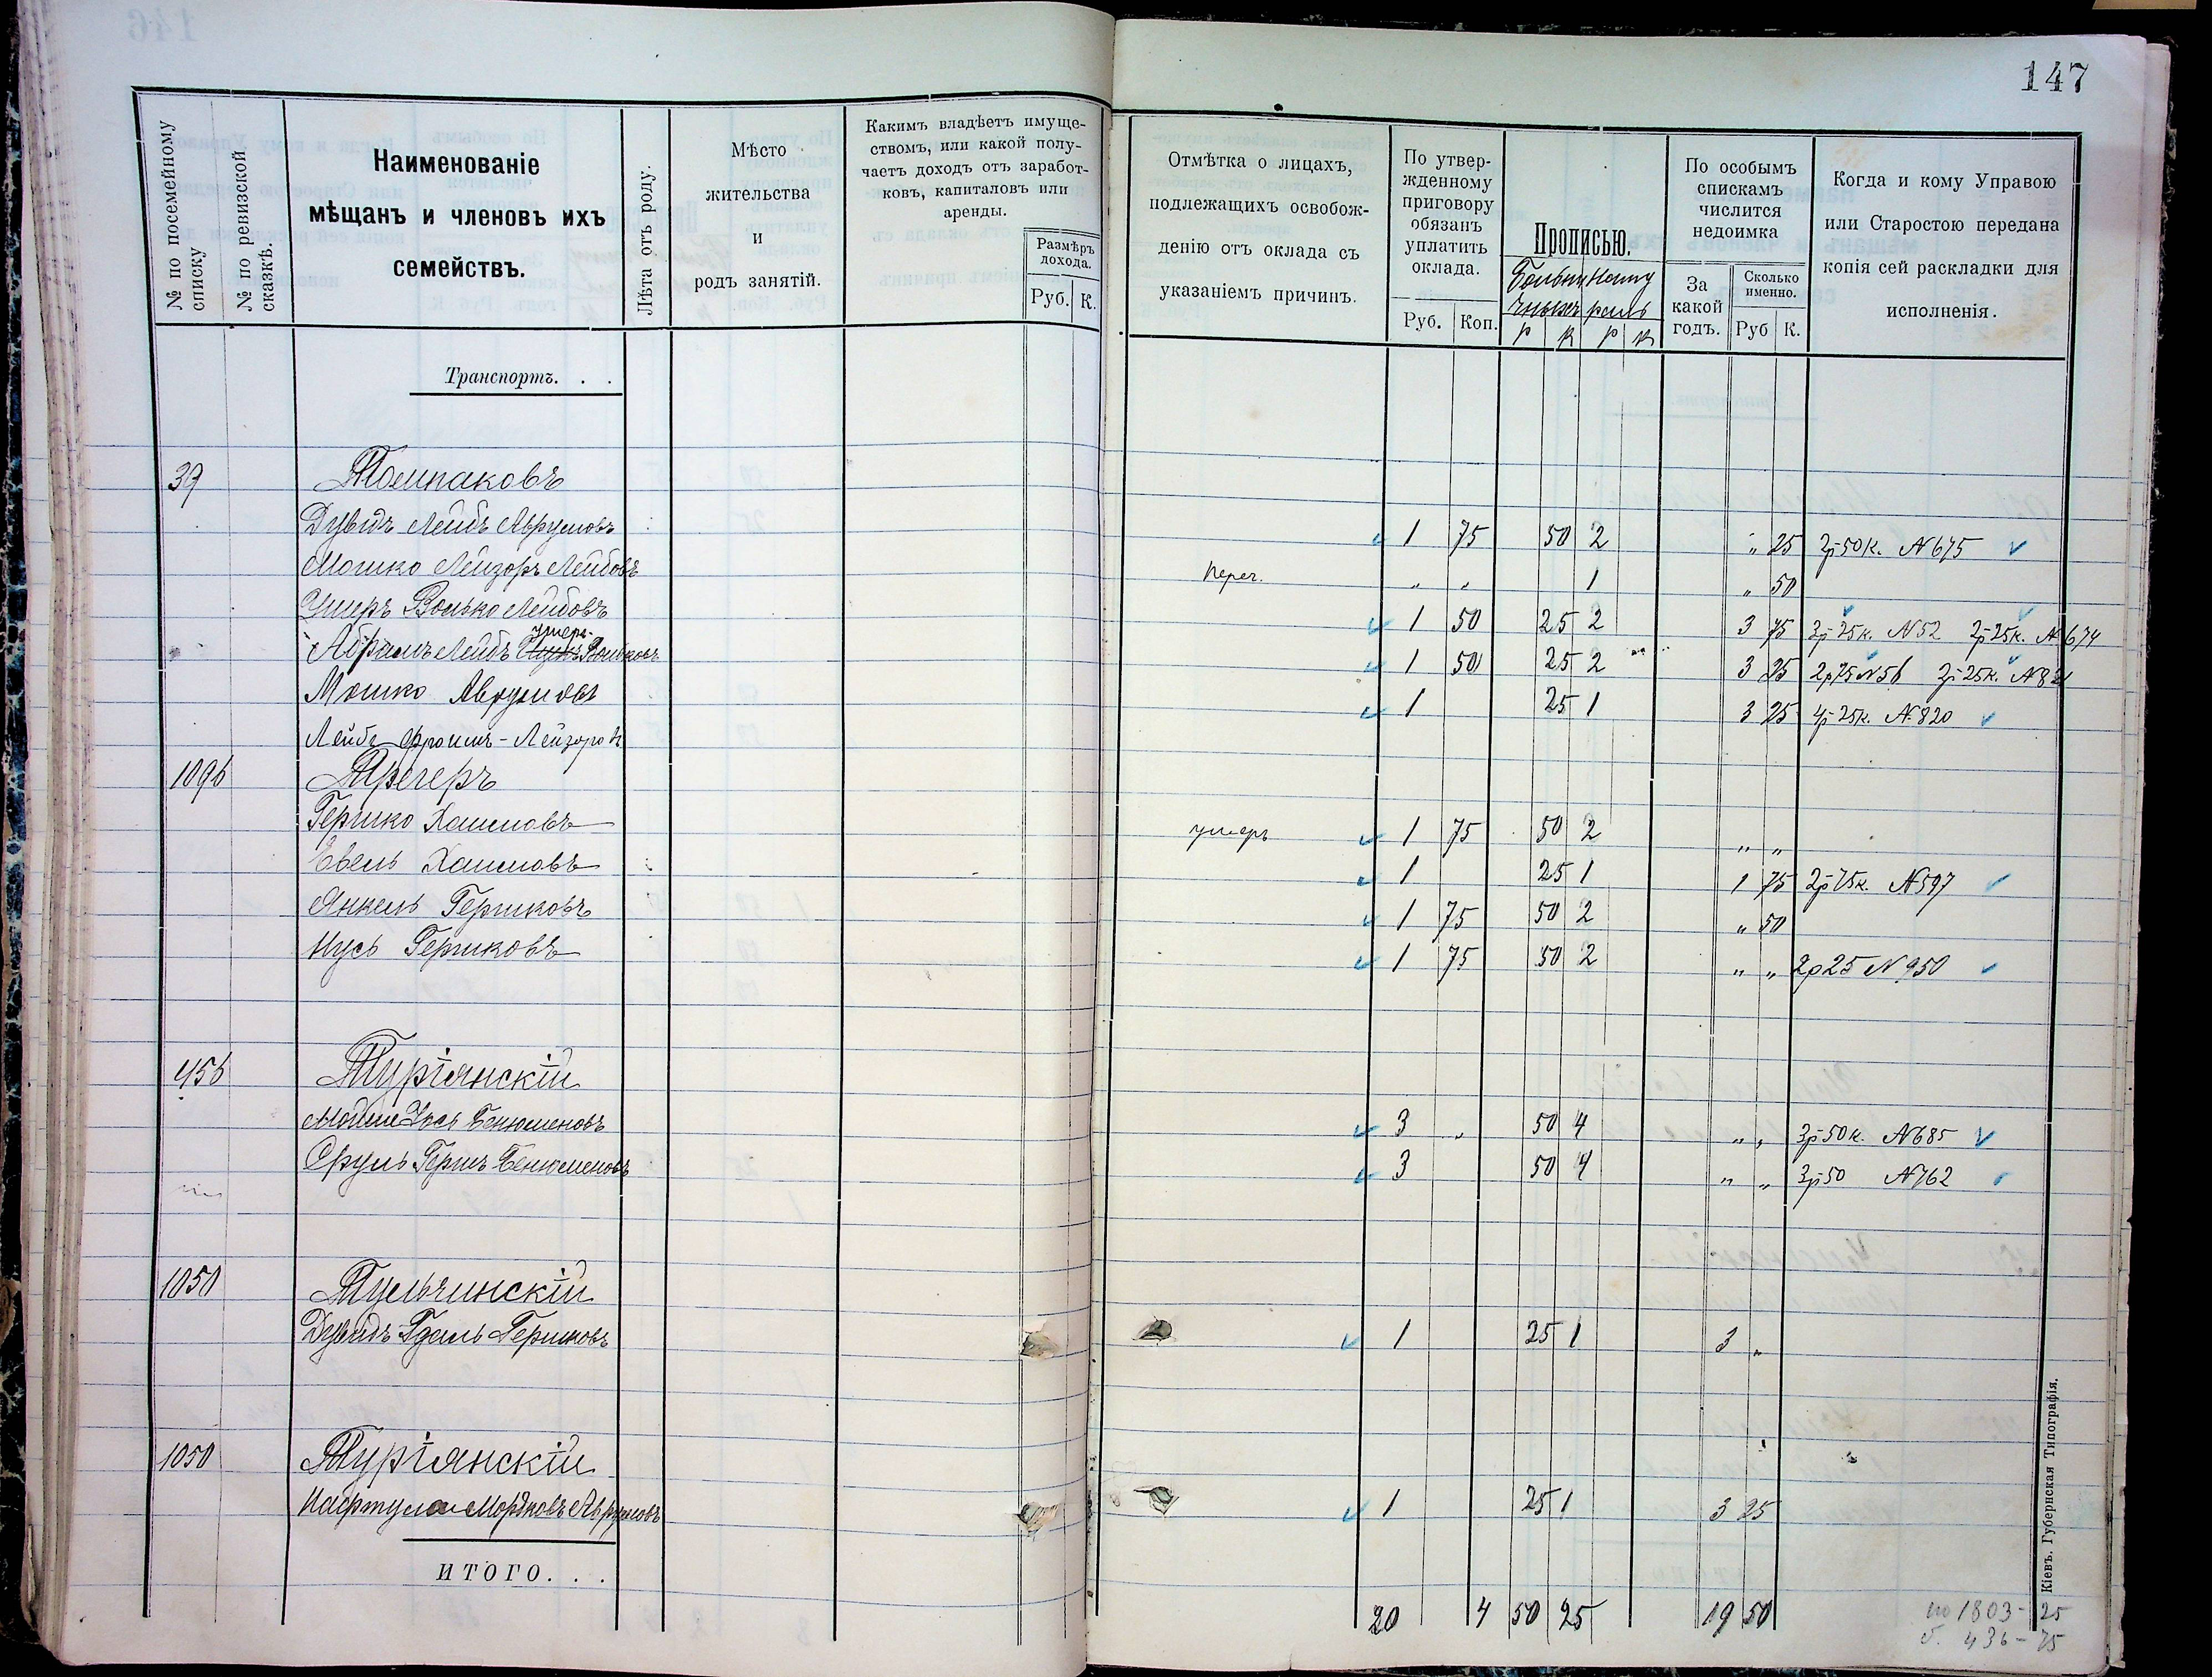 147
№ по посемейному списку
№ по ревизской сказкѣ.
Наименованіе
мѣщанъ и членовъ ихъ
семействъ.
Лѣта отъ роду.
Мѣсто
жительства
и
родъ занятій.
Какимъ владѣетъ имуще-
ствомъ, или какой полу-
чаетъ доходъ отъ заработ-
ковъ, капиталовъ или
аренды.
Размѣръ
дохода.
Руб. К.
Отмѣтка о лицахъ,
подлежащихъ освобож-
денію отъ оклада съ
указаніемъ причинъ.
По утвер-
жденному
приговору
обязанъ
уплатить
оклада.
Руб. Коп.
Прописью.
р к р к
По особымъ
спискамъ
числится
недоимка
За
какой
годъ.
Сколько
именно.
Руб К.
Когда и кому Управою
или Старостою передана
копія сей раскладки для
исполненія.
Транспортъ. . .
39 Толпаковъ
Дувидъ Лейбъ Аврумовъ 1 75 50 2 " 25 2р 50к. N 675
Мошко Лейзоръ Лейбовъ переч. " " 1 " 50
Ушеръ Волько Лейбовъ 1 50 25 2 3 75 2р 25к. N 52 2р 25к. N 674
умеръ
Абрамъ Лейбъ Вольковъ 1 50 25 2 3 25 2р 75 N 56 2р 25к. N 821
Мошко Аврумовъ 1 25 1 3 25 4р 25к. N 820
Лейбъ Фроимъ - Лейзоровъ
1096 Трегеръ
Гершко Хаимовъ умеръ 1 75 50 2 " "
Евель Хаимовъ 1 25 1 1 75 2р 75к. N 597
Янкель Гершковъ 1 75 50 2 " 50
Нусь Гершковъ 1 75 50 2 " " 2р 25 N 950
456 Туріянскій
Мойше Іось Бенюменовъ 3 " 50 4 " " 3р 50к. N 685
Сруль Гершъ Бенюменовъ 3 50 4 " " 3р 50 N 762
1050 Тульчинскій
Дувидъ Гдаль Гершковъ 1 25 1 3 "
1050 Туріянскій
Нафтула Мордковъ Аврумовъ 1 25 1 3 25
ИТОГО. . .
20 4 50 25 19 50
по 1803 - 25
б. 436 - 75
Кіевъ. Губернская Типографія.